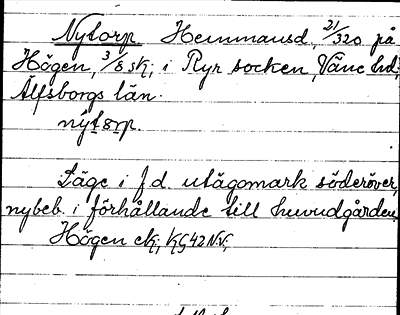 Nytorp Hemmansd., 21/320 på
Högen, 3/8 sk, i Ryr socken, Väne hd,
Älfsborgs län.
nýt8rp.
Läge i f d. utägomark söderöver,
nybeb. i förhållande till huvudgården
Högen ek, KG42NV,